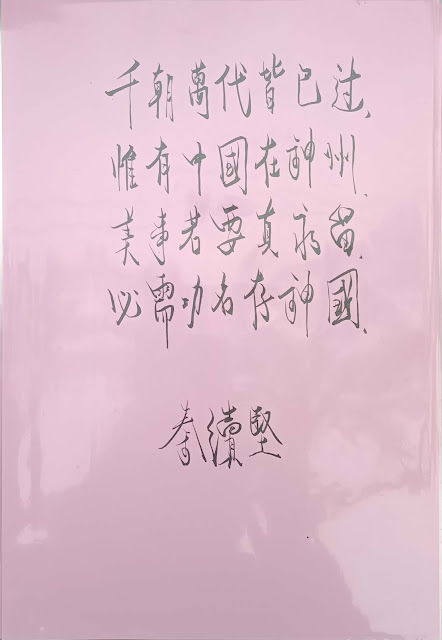 千朝萬代皆已过.
惟有中國在神州.
美事若要真永留.
必需功名存神國.
秦續堅